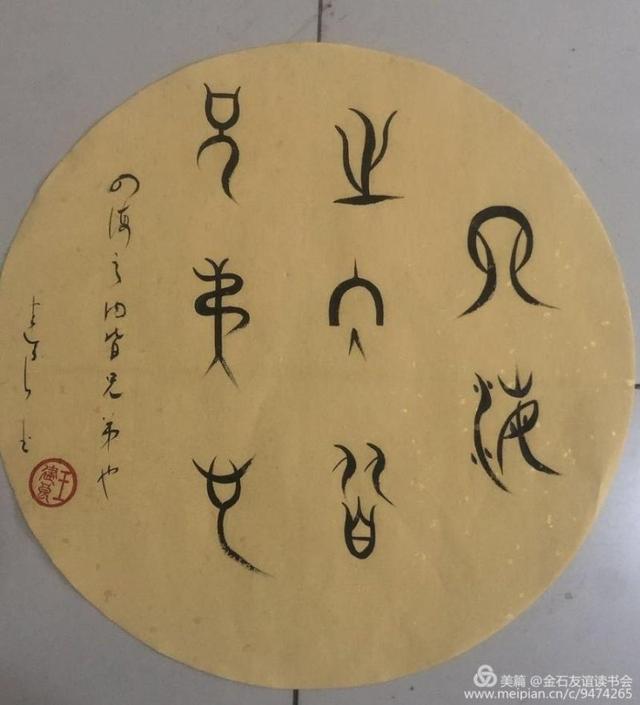 四海
之内皆
兄弟也
四海之内皆兄弟也
美篇 @金石友谊读书会
www.meipian.cn/c/9474265